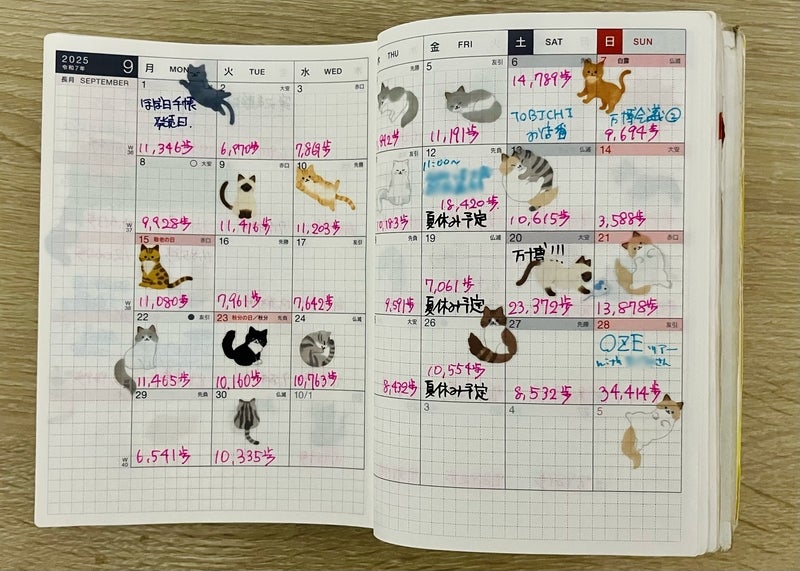 2025
令和7年
9
月 MON
火 TUE
水 WED
THU
金 FRI
土 SAT
日 SUN
長月 SEPTEMBER
1
ほぼ日手帳
発売日.
11,346歩
2 大安
6,970歩
3 赤口
7,869歩
先勝
5 友引
11,191歩
6
14,789歩
TOBICHI
お店番
7 白露 仏滅
万博会議②
9,694歩
W
36
8 大安
9,928歩
9 赤口
11,416歩
10 先勝
11,203歩
友引
10,183歩
12 先負
11:00~
18,420歩
夏休み予定
13 仏滅
10,615歩
14 大安
3,588歩
W
37
15 敬老の日 赤口
11,080歩
16 先勝
7,961歩
17 友引
7,642歩
先負
9,591歩
19 仏滅
7,061歩
夏休み予定
20 大安
万博!!!
23,372歩
21 赤口
13,878歩
W
38
22 友引
11,465歩
23 秋分の日/秋分 先負
10,160歩
24 仏滅
10,763歩
大安
8,432歩
26 赤口
10,554歩
夏休み予定
27 先勝
8,532歩
28 友引
OZEツアー
with
さん
34,414歩
29 先負
6,541歩
30 仏滅
10,335歩
10/1
3
4
5
W
40